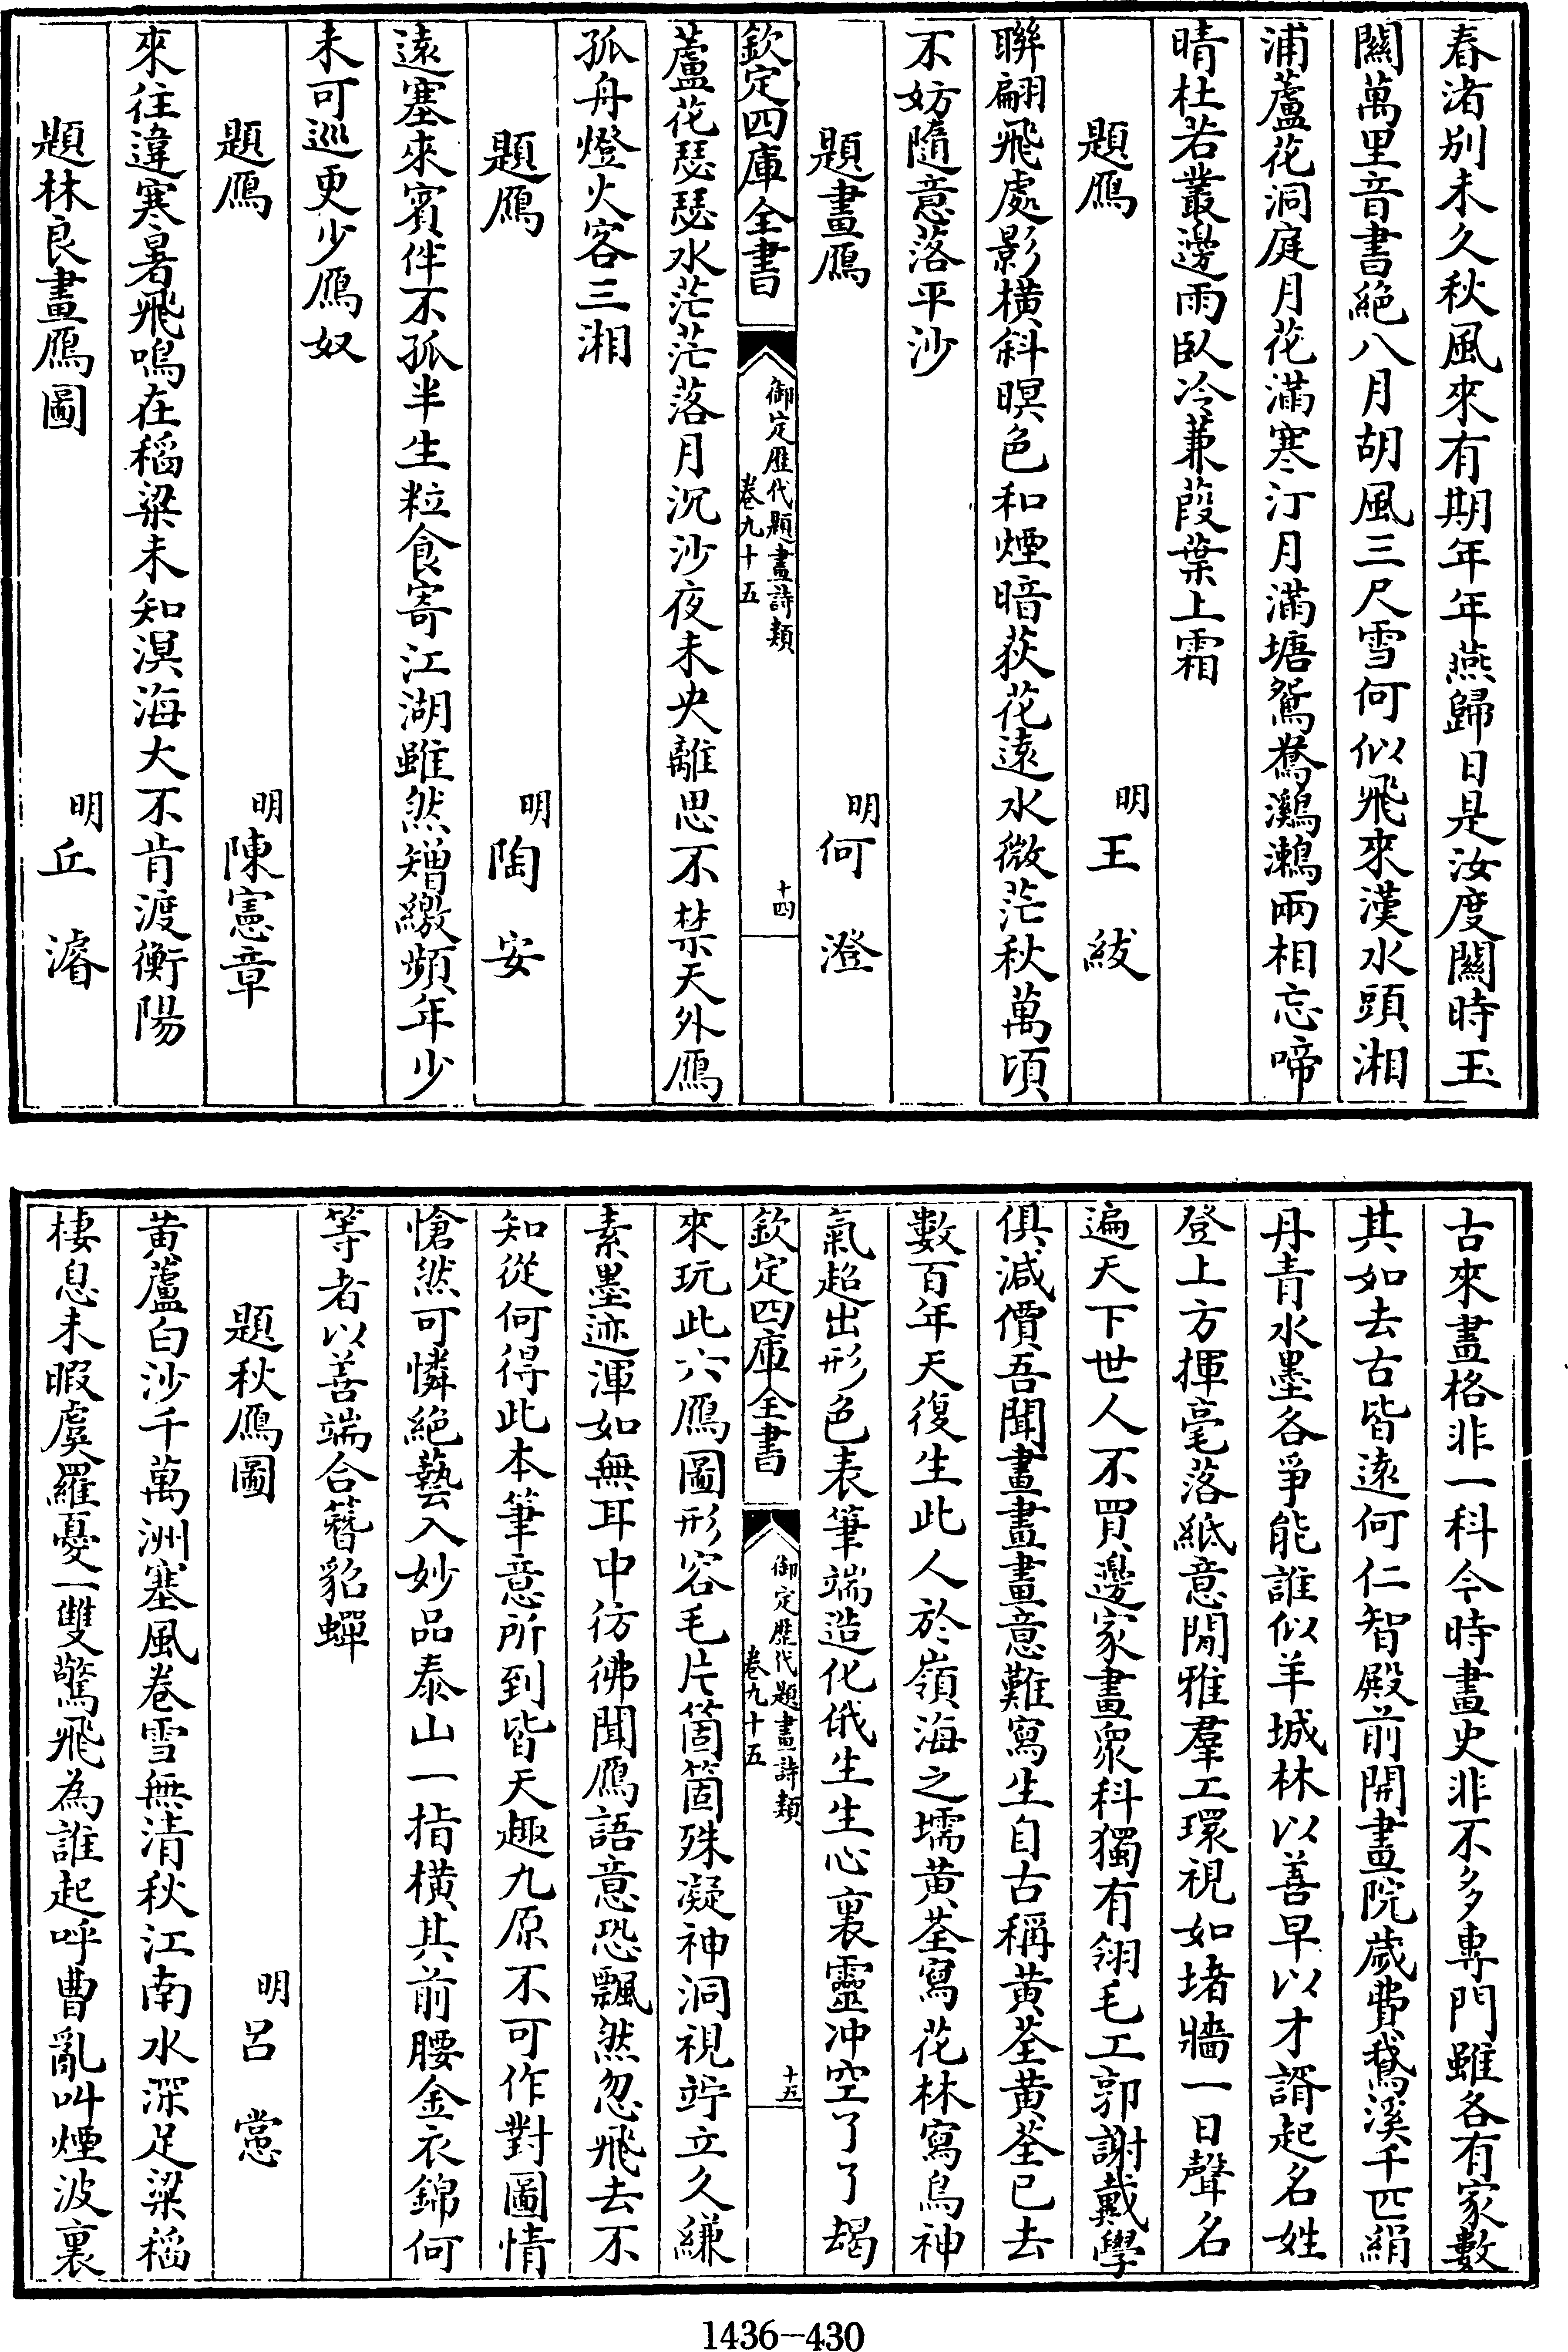 春渚别未久秋風來有期年年燕歸日是汝度關時玉
關萬里音書絶八月胡風三尺雪何似飛來漢水頭湘
浦蘆花洞庭月花滿寒汀月滿塘鴛鴦鸂鶒兩相忘啼
晴杜若叢邊雨臥冷蒹葭葉上霜
題鴈　明王紱
聯翩飛處影横斜暝色和煙暗荻花遠水微茫秋萬頃
不妨隨意落平沙
題畫鴈　明何澄
欽定四庫全書　御定歷代題畫詩類　卷九十五　十四
蘆花瑟瑟水茫茫落月沉沙夜未央離思不禁天外鴈
孤舟燈火客三湘
題鴈　明陶安
遠塞來賓伴不孤半生粒食寄江湖雖然矰繳頻年少
未可巡更少鴈奴
題鴈　明陳憲章
來往違寒暑飛鳴在稻粱未知溟海大不肯渡衡陽
題林良畫鴈圖　明丘濬
古來畫格非一科今時畫史非不多專門雖各有家數
其如去古皆遠何仁智殿前開畫院歲費鵞溪千匹絹
丹青水墨各爭能誰似羊城林以善早以才諝起名姓
登上方揮毫落紙意閒雅羣工環視如堵牆一日聲名
遍天下世人不買邊家畫衆科獨有翎毛工郭謝戴學
俱減價吾聞畫畫畫意難寫生自古稱黄荃黄荃已去
數百年天復生此人於嶺海之壖黄荃寫花林寫鳥神
氣超出形色表筆端造化俄生生心裏靈冲空了了朅
欽定四庫全書　御定歷代題畫詩類　卷九十五　十五
來玩此六鴈圖形容毛片箇箇殊凝神洞視竚立久縑
素墨迹渾如無耳中彷彿聞鴈語意恐飄然忽飛去不
知從何得此本筆意所到皆天趣九原不可作對圖情
愴然可憐絶藝入妙品泰山一指横其前腰金衣錦何
等者以善端合簪貂蟬
題秋鴈圖　明呂㦂
黄蘆白沙千萬洲塞風卷雪無清秋江南水深足粱稻
棲息未暇虞羅憂一雙驚飛為誰起呼曹亂叫煙波裏
1436-430